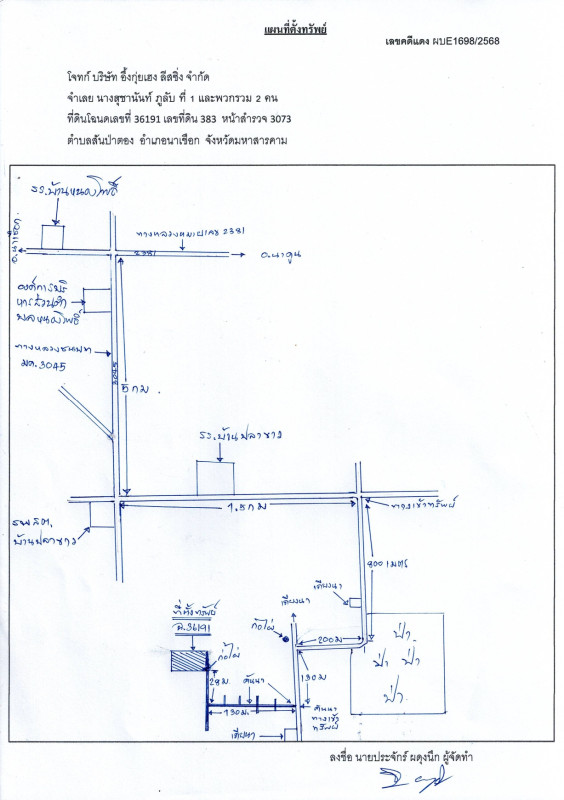 แผนที่ตั้งทรัพย์
เลขคดีแดง ผบE1698/2568
โจทก์ บริษัท อึ้งกุ่ยเฮง ลีสซิ่ง จำกัด
จำเลย นางสุชานันท์ ภูลับ ที่ 1 และพวกรวม 2 คน
ที่ดินโฉนดเลขที่ 36191 เลขที่ดิน 383 หน้าสำรวจ 3073
ตำบลสันป่าตอง อำเภอนาเชือก จังหวัดมหาสารคาม
รร.บ้านหนองโพธิ์
ทางหลวงหมายเลข 2381
อ.นาเชือก
2381
อ.นาดูน
องค์การบริ
หารส่วนตำ
บลหนองโพธิ์
ทางหลวงชนบท
มค.3045
3045
5 กม.
รร.บ้านปลาขาว
1.5 กม
ทางเข้าทรัพย์
รพ.สต.
บ้านปลาขาว
800 เมตร
เถียงนา
เถียงนา
ที่ตั้งทรัพย์
ฉ.36191
กอไผ่
กอไผ่
200 ม
ป่า
ป่า ป่า
ป่า
28 ม.
คันนา
130 ม
130 ม.
คันนา
ทางเข้า
ทรัพย์
เถียงนา
ลงชื่อ นายประจักร์ ผดุงนึก ผู้จัดทำ